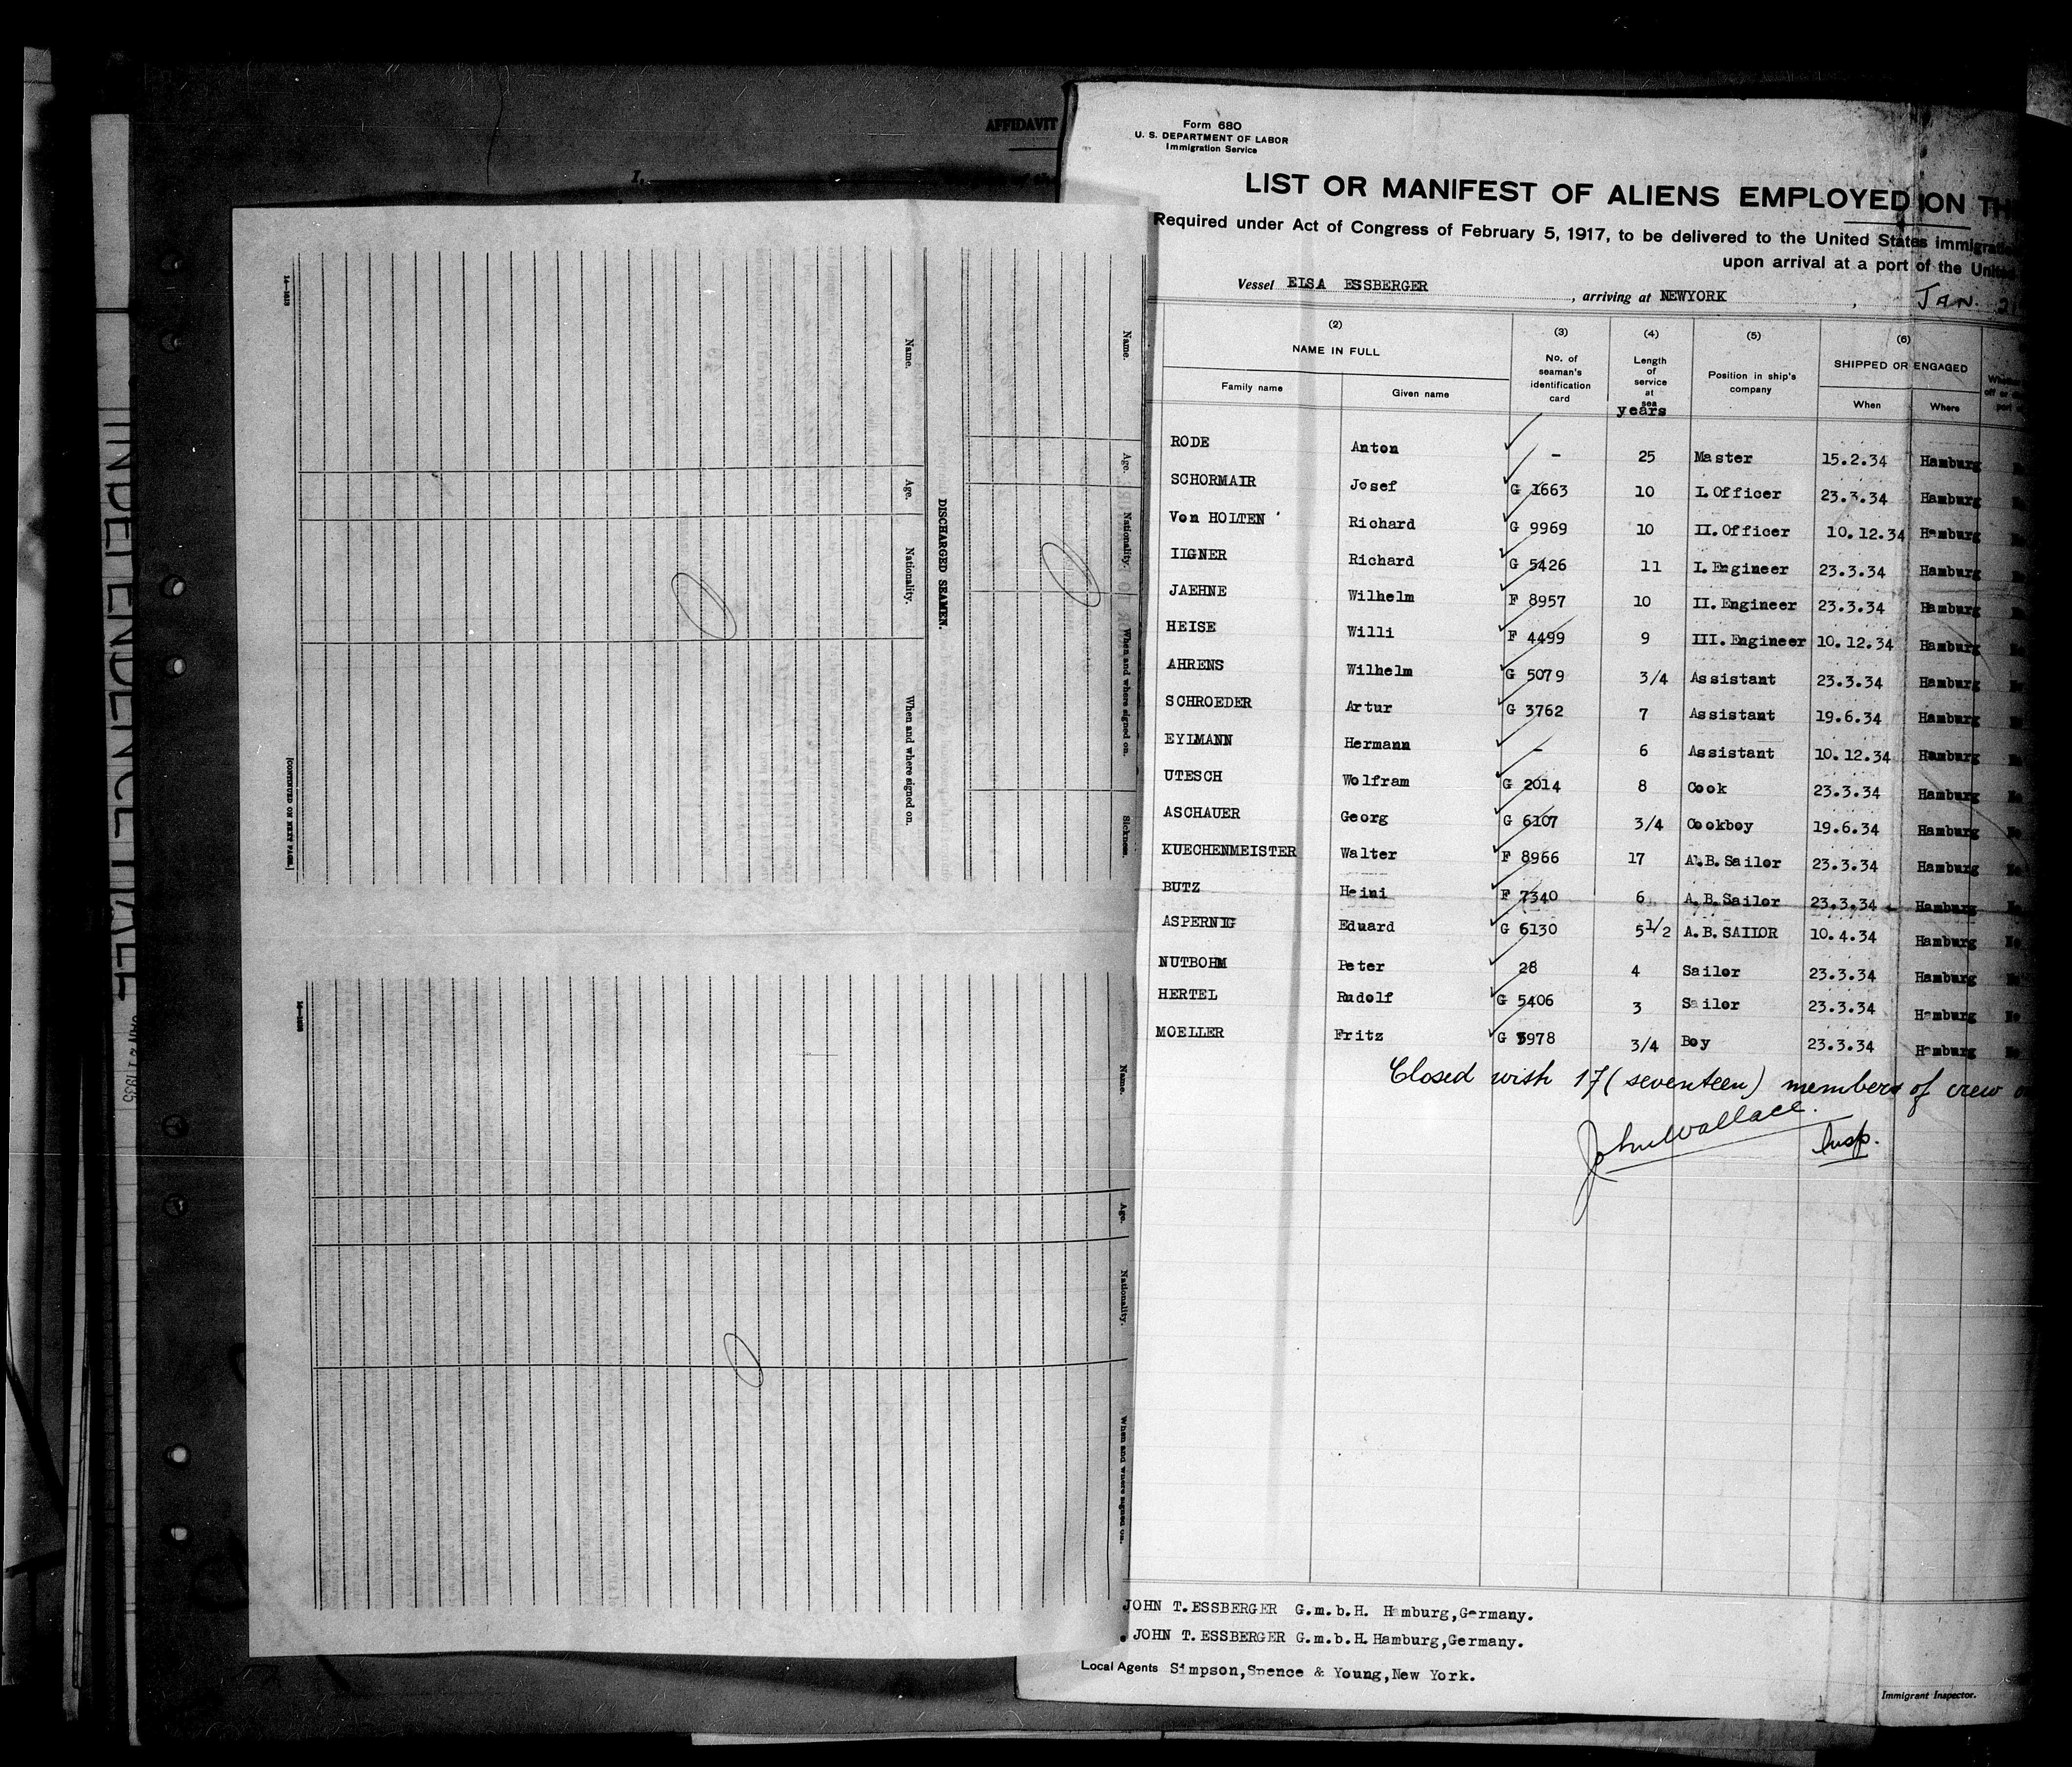 INDEPENDENCE HALL
JAN 21 1935
AFFIDAVIT
I,
14—1513
[CONTINUED ON NEXT PAGE.]
Name.
Age.
Nationality.
When and where signed on.
DISCHARGED SEAMEN.
Name.
Age.
Nationality.
When and where signed on.
Sickness.
Name.
Age.
Nationality.
When and where signed on.
Form 680
U. S. DEPARTMENT OF LABOR
Immigration Service
LIST OR MANIFEST OF ALIENS EMPLOYED ON TH
Required under Act of Congress of February 5, 1917, to be delivered to the United States immigratio
upon arrival at a port of the United
Vessel ELSA ESSBERGER , arriving at NEWYORK , JAN. 21
(2) (3) (4) (5) (6)
NAME IN FULL No. of seaman's identification card Length of service at sea Position in ship's company SHIPPED OR ENGAGED
Family name Given name years When Where
RODE Anton - 25 Master 15.2.34 Hamburg
SCHORMAIR Josef G 1663 10 I.Officer 23.3.34 Hamburg
Von HOLTEN Richard G 9969 10 II.Officer 10.12.34 Hamburg
ILGNER Richard G 5426 11 I.Engineer 23.3.34 Hamburg
JAEHNE Wilhelm F 8957 10 II.Engineer 23.3.34 Hamburg
HEISE Willi F 4499 9 III.Engineer 10.12.34 Hamburg
AHRENS Wilhelm G 5079 3/4 Assistant 23.3.34 Hamburg
SCHROEDER Artur G 3762 7 Assistant 19.6.34 Hamburg
EYLMANN Hermann - 6 Assistant 10.12.34 Hamburg
UTESCH Wolfram G 2014 8 Cook 23.3.34 Hamburg No
ASCHAUER Georg G 6107 3/4 Cookboy 19.6.34 Hamburg No
KUECHENMEISTER Walter F 8966 17 A.B.Sailor 23.3.34 Hamburg No
BUTZ Heini F 7340 6 A.B.Sailor 23.3.34 Hamburg No
ASPERNIG Eduard G 6130 5 1/2 A.B.SAILOR 10.4.34 Hamburg No
NUTBOHM Peter 28 4 Sailor 23.3.34 Hamburg No
HERTEL Rudolf G 5406 3 Sailor 23.3.34 Hamburg No
MOELLER Fritz G 5978 3/4 Boy 23.3.34 Hamburg No
Closed with 17 (seventeen) members of crew
John Wallace. Insp.
JOHN T.ESSBERGER G.m.b.H. Hamburg,Germany.
JOHN T.ESSBERGER G.m.b.H.Hamburg,Germany.
Local Agents Simpson,Spence & Young,New York.
Immigrant Inspector.